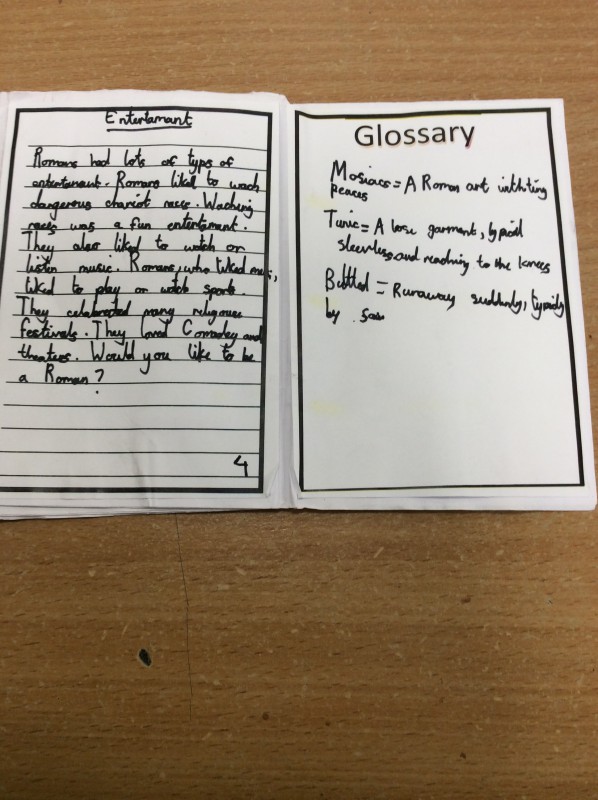 Entertamant
Romans had lots of typs of
entertament. Romans liked to wach
dangerous chariot races. Waching
races was a fun entertament.
They also liked to watch or
listen music. Romans, who liked
liked to play or watch sports.
They celebrated many religous
festivals. They loved Comadey and
theatres. Would you like to be
a Roman?
4
Glossary
Mosiacs = A Roman art with ting
peaces
Tunic = A lose garment, typicil
sleevless and reaching to the knees
= Runaway suddnly, typicily
by